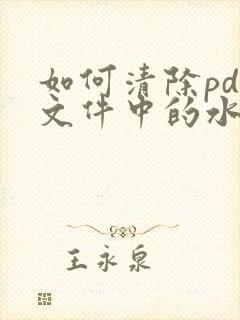 如何清除pd
文件中的水
王永泉